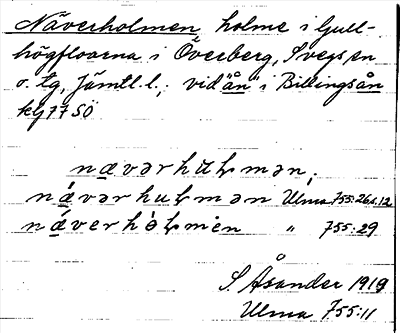 Näverholmen, holme i Gull-
högfloarna i Överberg, Svegs sn
o. tg, Jämtl. l.; vid "ån" i Billingsån
klj 77 SÖ
nævərhŭɫmən,
nǽvərhuɫmən Ulma 755:26 s.12
nǽverhòɫmen " 755:29
S. Åsander 1919
Ulma 755:11